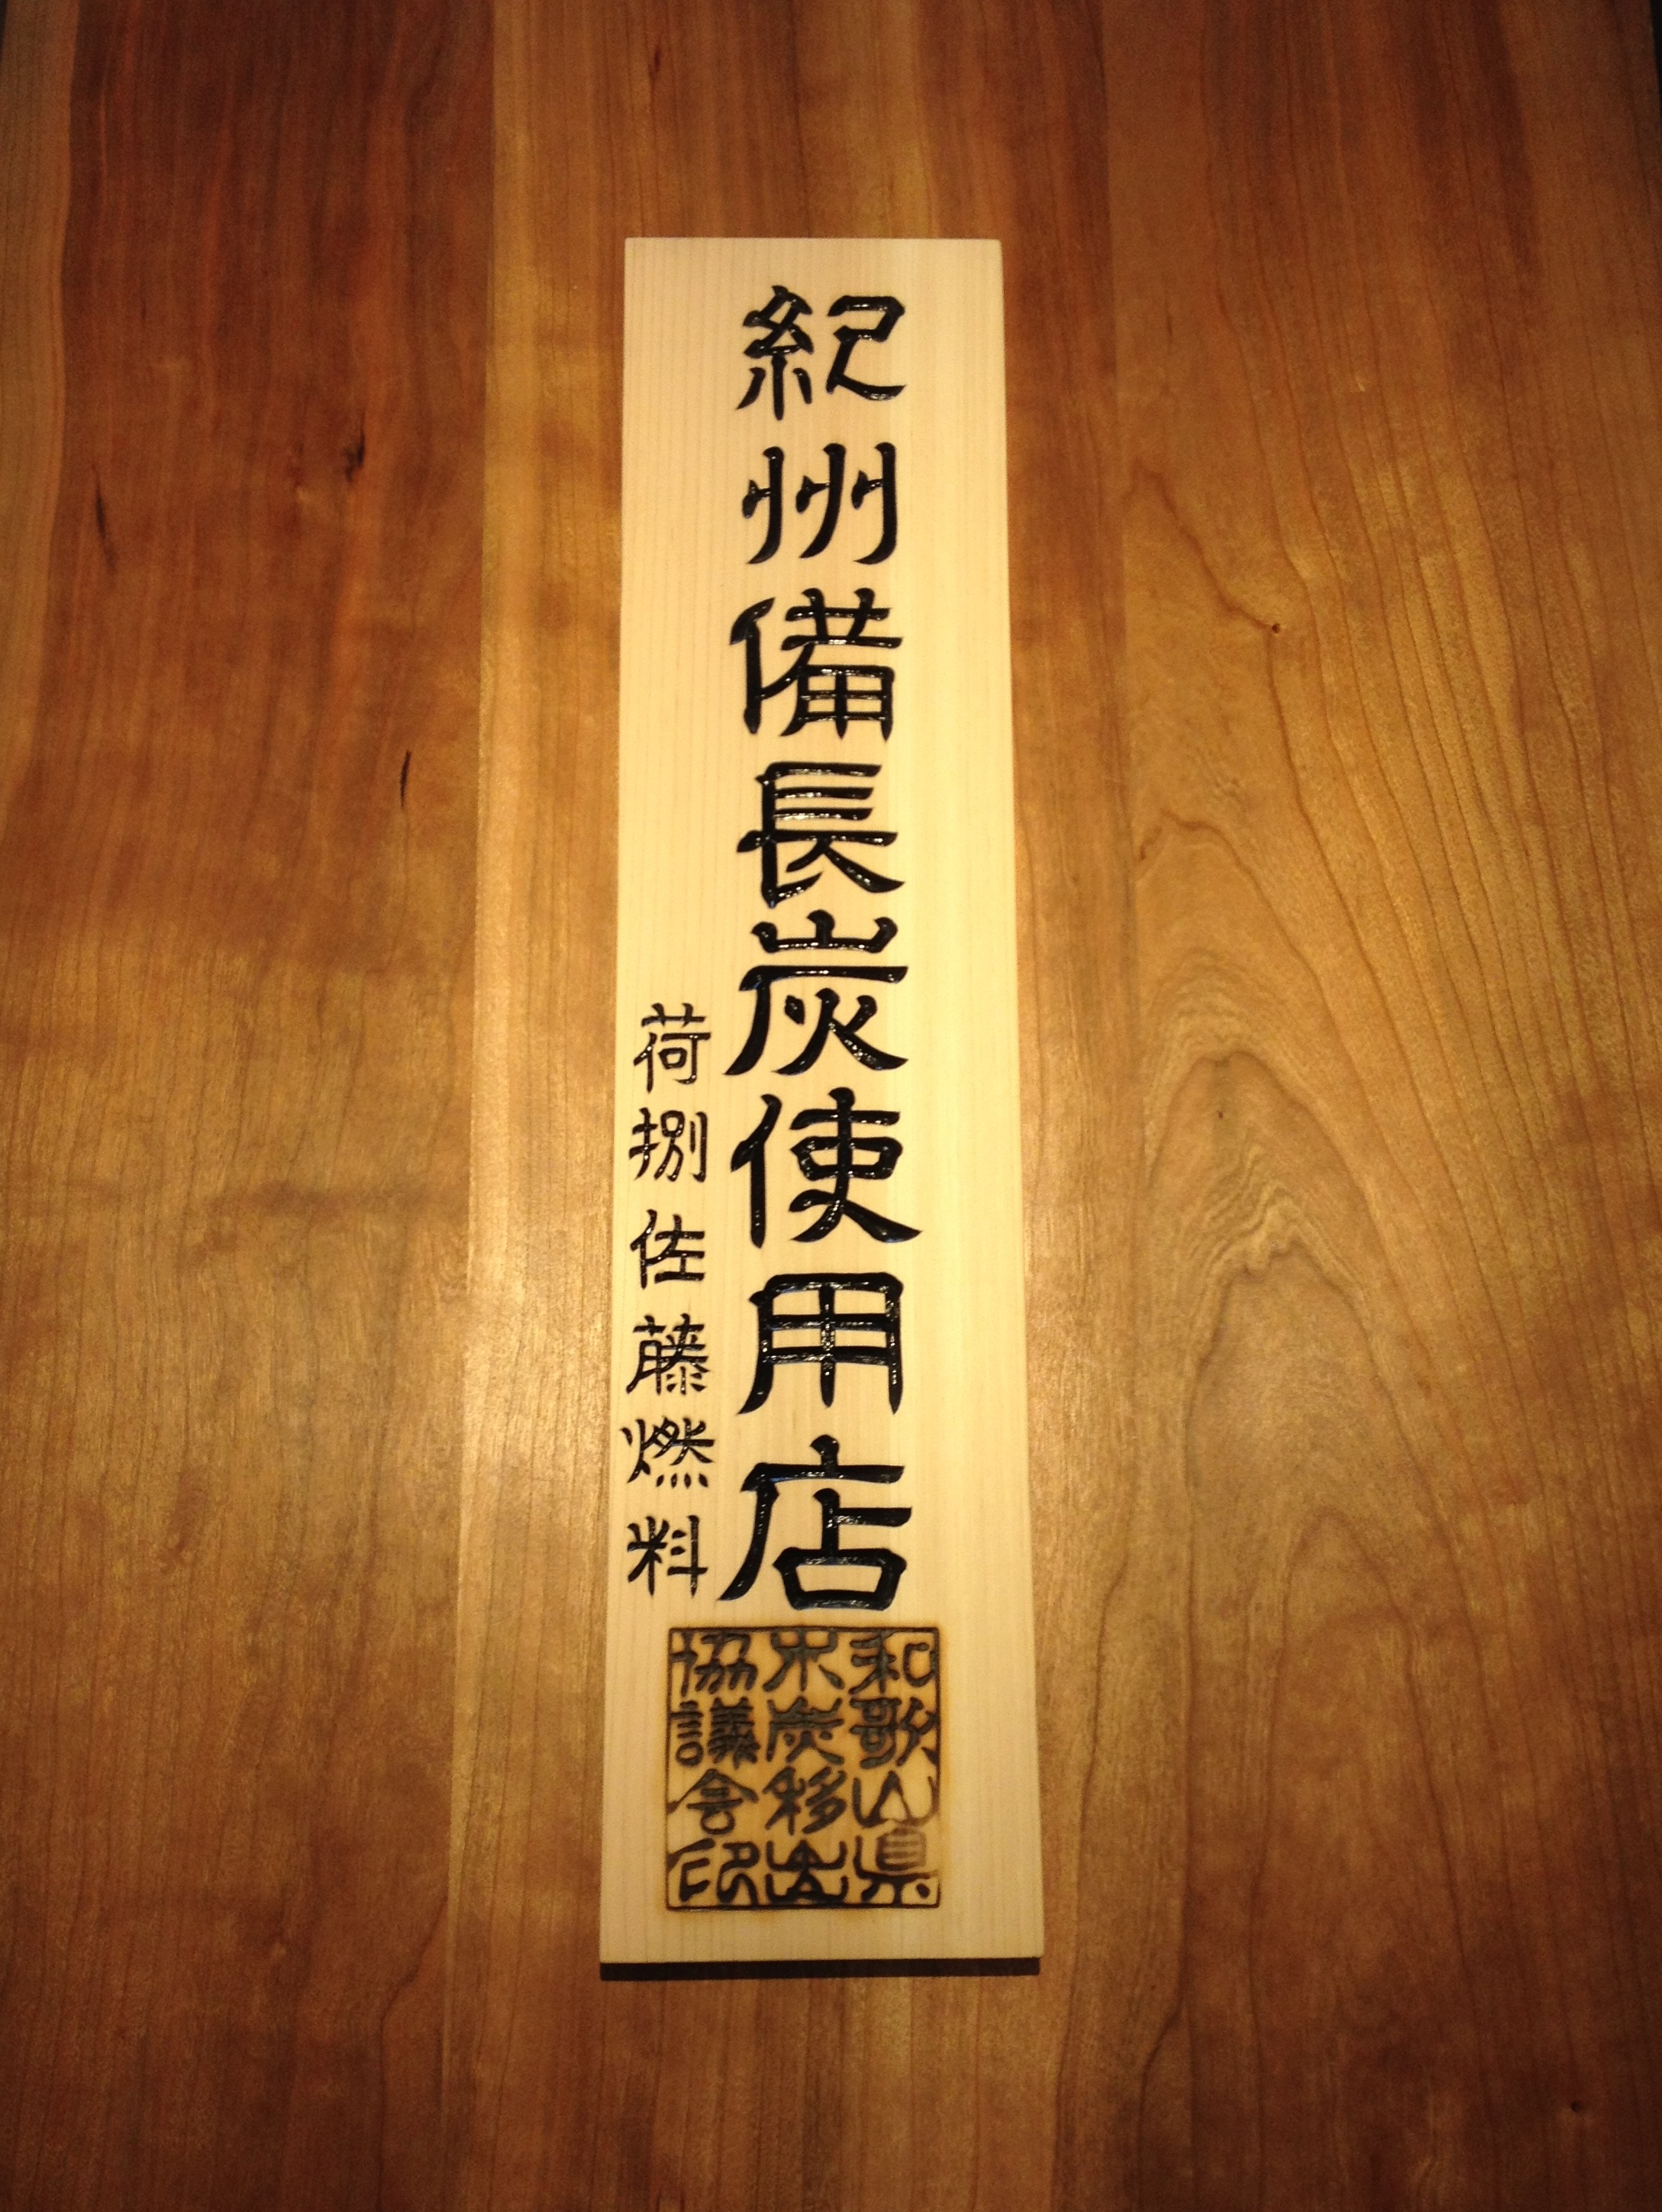 紀州備長炭使用店
荷捌佐藤燃料
和歌山県
木炭移出
協議會印